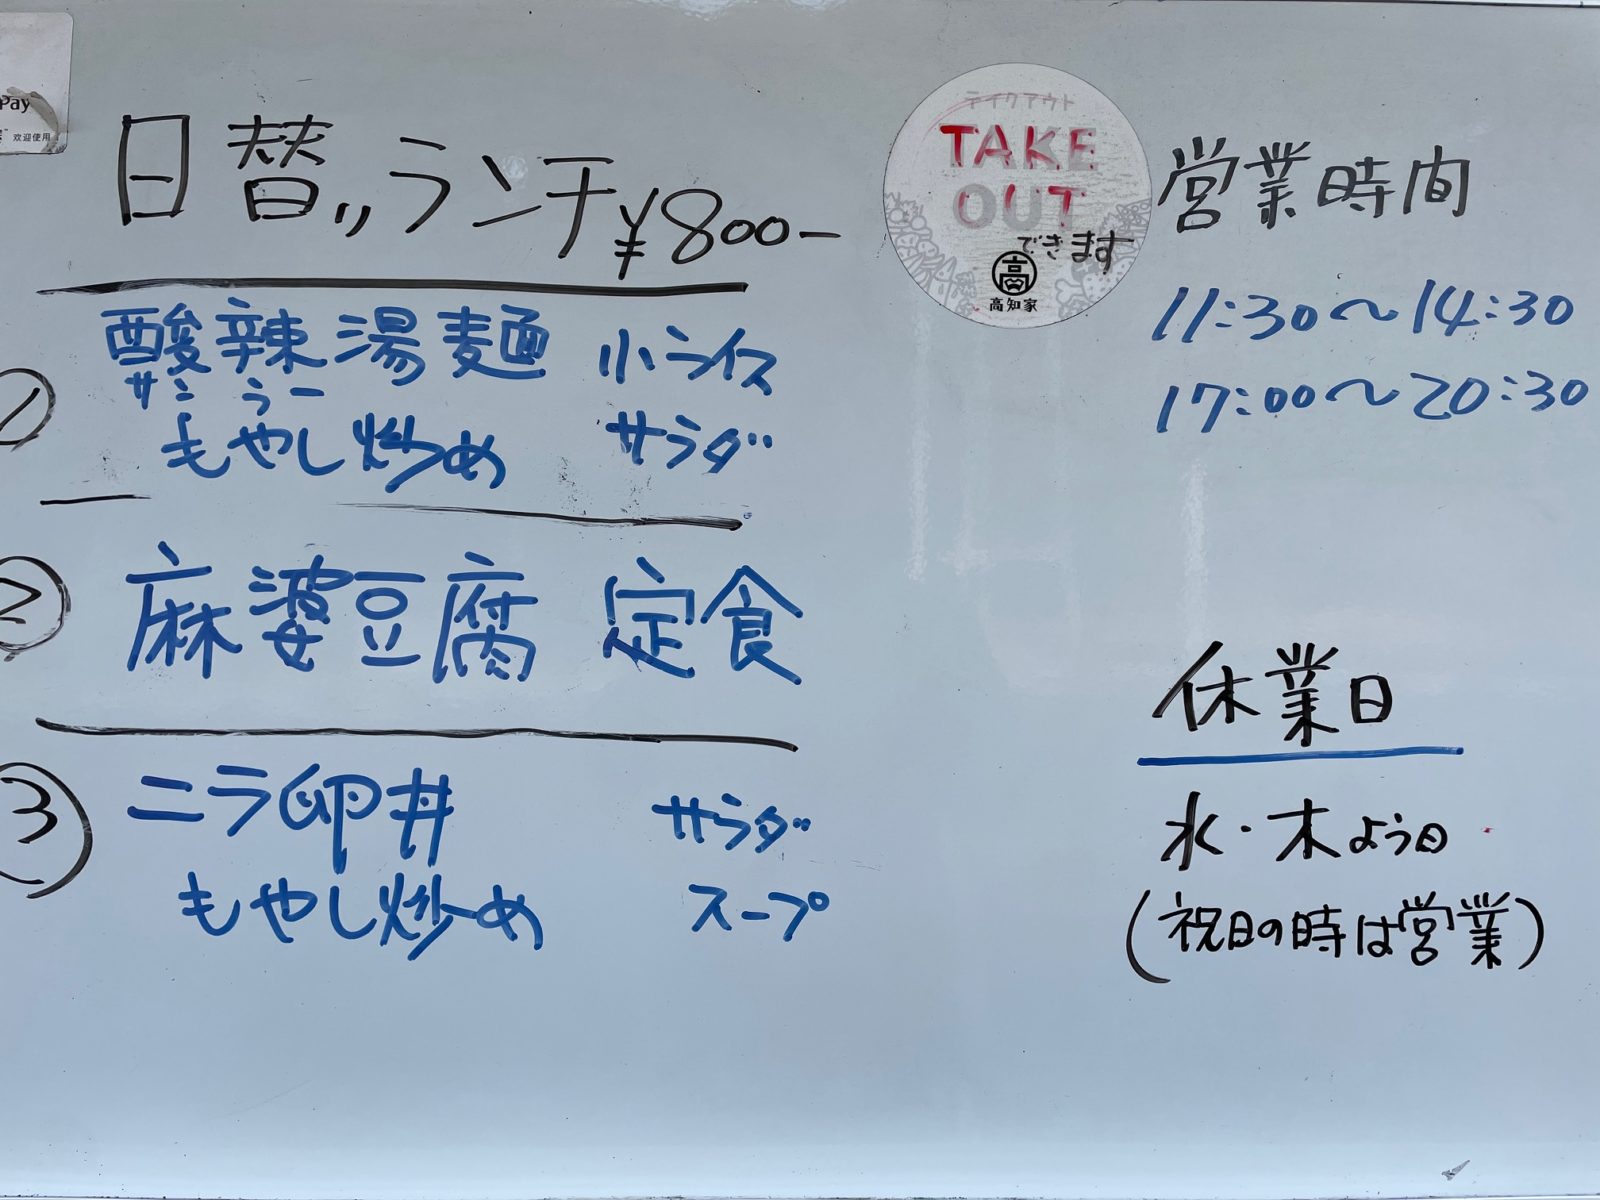 Pay
欢迎使用
日替りランチ ¥800-
① 酸辣湯麺 小ライス
サンラー
もやし炒め サラダ
② 麻婆豆腐 定食
③ ニラ卵丼 サラダ
もやし炒め スープ
テイクアウト
TAKE
OUT
できます
高
高知家
営業時間
11:30〜14:30
17:00〜20:30
休業日
水・木よう日
(祝日の時は営業)